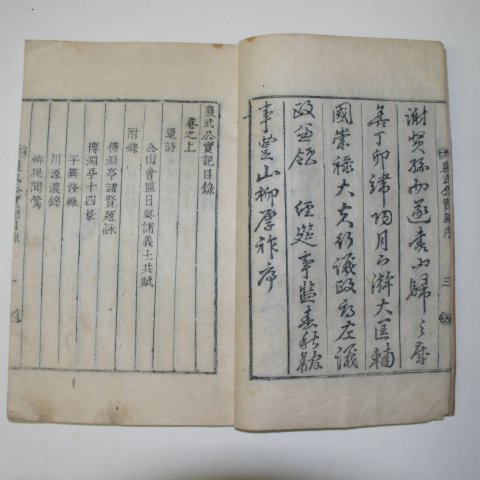 謝賢孫而遂書而歸之歲
舍丁卯端陽月下澣大匡輔
國崇祿大夫行議政府左議
政兼領 經筵事監春秋館
事豊山柳厚祚序
襄武公實記序
三
襄武公實記目錄
卷之上
遺詩
公山會盟日與諸義士共賦
附錄
傳淵亭諸賢題詠
傳淵亭十四景
平蕪汾綠
川源濃錦
柳堤聞鶯